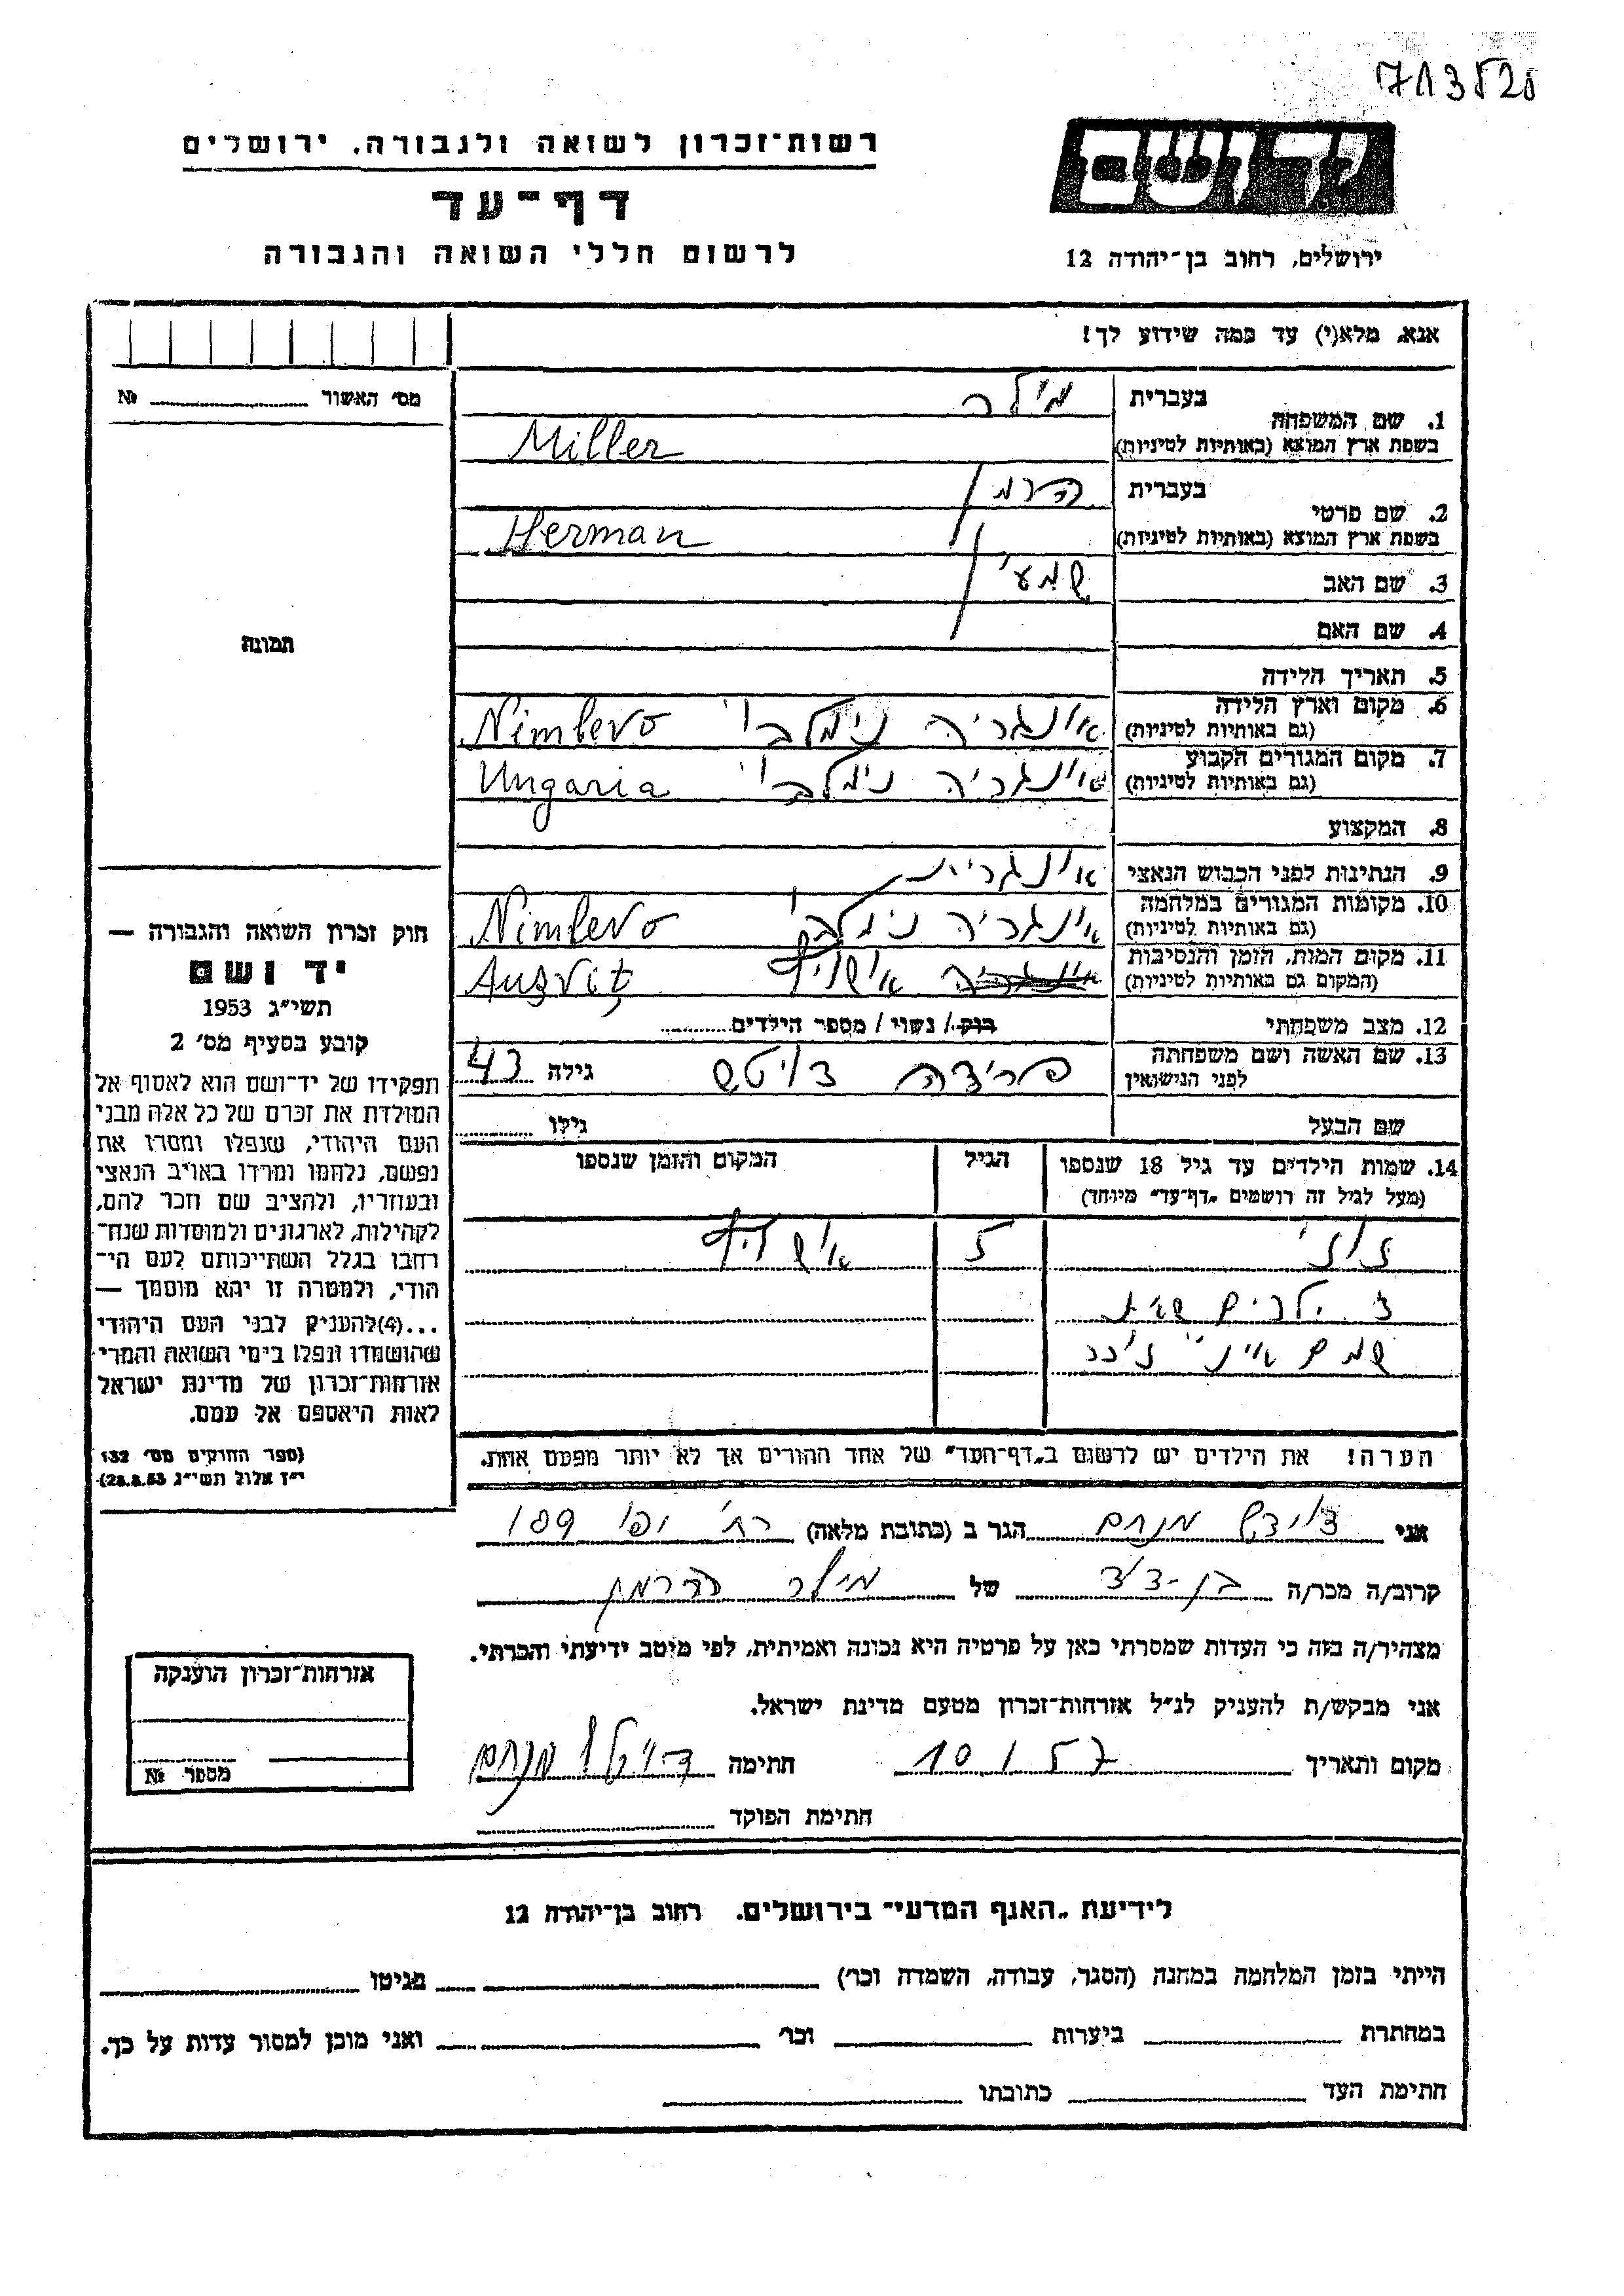 713520
ידושם
ירושלים, רחוב בן־יהודה 12
רשות־זכרון לשואה ולגבורה, ירושלים
דף־עד
לרשום חללי השואה והגבורה
אנא, מלא(י) עד כמה שידוע לך!
מס׳ האשור № 
בעברית מילר
1. שם המשפחה
בשפת ארץ המוצא (באותיות לטיניות) Miller
בעברית הרמן
2. שם פרטי
בשפת ארץ המוצא (באותיות לטיניות) Herman
3. שם האב שמעון
4. שם האם
תמונה
5. תאריך הלידה
6. מקום וארץ הלידה אונגריה נימלבו Nimlevo
(גם באותיות לטיניות)
7. מקום המגורים הקבוע אונגריה נימלבו Ungaria
(גם באותיות לטיניות)
8. המקצוע
9. הנתינות לפני הכבוש הנאצי אונגרית
10. מקומות המגורים במלחמה אונגריה נימלבו Nimlevo
(גם באותיות לטיניות)
11. מקום המות, הזמן והנסיבות אושויץ Auzvitz
(המקום גם באותיות לטיניות)
12. מצב משפחתי רוק / נשוי / מספר הילדים
13. שם האשה ושם משפחתה פרידה דויטש גילה 43
לפני הנישואין
שם הבעל גילו
14. שמות הילדים עד גיל 18 שנספו הגיל המקום והזמן שנספו
(מעל לגיל זה רושמים „דף־עד״ מיוחד)
אושויץ
ילדים
שמם
הערה! את הילדים יש לרשום ב„דף־העד״ של אחד ההורים אך לא יותר מפעם אחת.
חוק זכרון השואה והגבורה —
יד ושם
תשי״ג 1953
קובע בסעיף מס׳ 2
תפקידו של יד־ושם הוא לאסוף אל
המולדת את זכרם של כל אלה מבני
העם היהודי, שנפלו ומסרו את
נפשם, נלחמו ומרדו באויב הנאצי
ובעוזריו, ולהציב שם וזכר להם,
לקהילות, לארגונים ולמוסדות שנח־
רחבו בגלל השתייכותם לעם הי־
הודי, ולמטרה זו יהא מוסמך —
...(4)להעניק לבני העם היהודי
שהושמדו ונפלו בימי השואה והמרי
אזרחות־זכרון של מדינת ישראל
לאות היאספם אל עמם.
(ספר החוקים מס׳ 132
י״ז אלול תשי״ג 28.8.53)
אני דויטש מנחם הגר ב (כתובת מלאה) רח׳ יפו 109
קרוב/ה מכר/ה בן-דוד של מילר הרמן
מצהיר/ה בזה כי העדות שמסרתי כאן על פרטיה היא נכונה ואמיתית, לפי מיטב ידיעתי והכרתי.
אני מבקש/ת להעניק לנ״ל אזרחות־זכרון מטעם מדינת ישראל.
מקום ותאריך 10.1.57 חתימה דויטש מנחם
חתימת הפוקד
אזרחות־זכרון הוענקה
מספר №
לידיעת „האגף המדעי״ בירושלים. רחוב בן־יהודה 12
הייתי בזמן המלחמה במחנה (הסגר, עבודה, השמדה וכו׳) בגיטו
במחתרת ביערות וכו׳ ואני מוכן למסור עדות על כך.
חתימת העד כתובתו